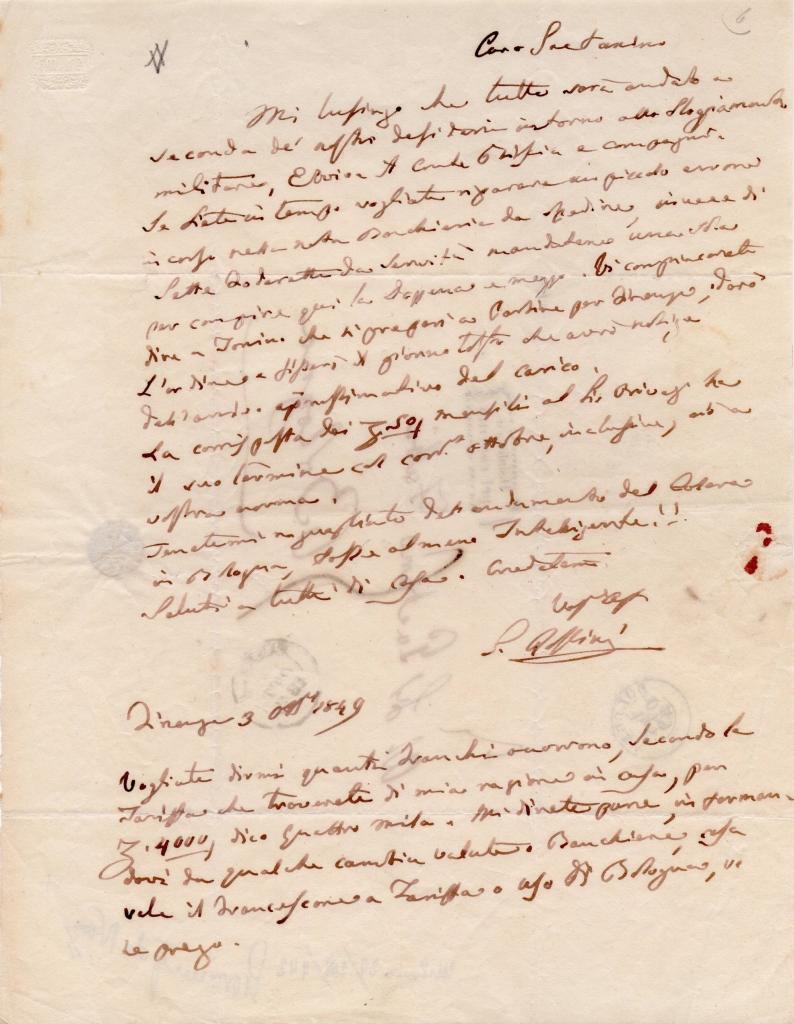 6
Caro Gaetanino
Mi lusingo che tutto sarà andato a
seconda de' nostri desiderii intorno allo sloggiamento
militare, Elvira il Conte e compagni.
Se siete in tempo vogliate riparare un piccolo errore
incorso nella nota Biancheria da spedire, invece di
Sette da Servitù mandatene una sola
per compire qui la Dozzena e mezzo. Vi compiacerete
dire a Tonino che si prepari a partire per Firenze, darò
l'ordine e il giorno tosto che avrò notizie
dell'arrivo approssimativo del carico.
La corrisposta dei mensili al Sig. ha
il suo termine col corr.e ottobre, inclusive, ciò a
vostra norma.
Tenetemi ragguagliato dell'andamento del Colera
in Bologna, fosse almeno Intelligente!!
Saluti a tutti di casa. Credetemi
Vos. Aff.
G. Rossini
Firenze 3 Ott. 1849
Vogliate dirmi quanti franchi occorrono, secondo la
Tariffa che troverete di mia ragione in casa, per
4000, dico quattro mila. Mi direte pure, informan-
dovi da qualche cambia valute o Banchiere, cosa
vale il Francescone a Tariffa o uso di Bologna, ve
ne prego.